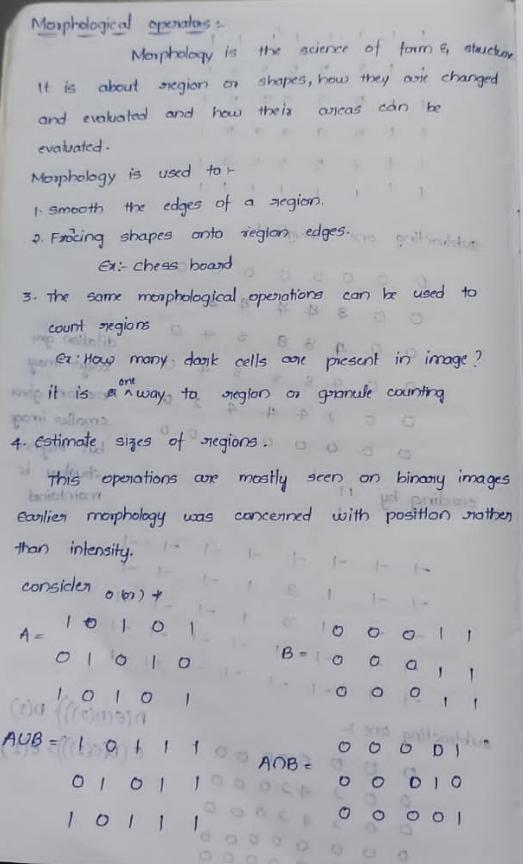 Morphological operators :-
Morphology is the science of form & structure
It is about region or shapes, how they are changed
and evaluated and how their areas can be
evaluated.
Morphology is used to :-
1. Smooth the edges of a region.
2. Forcing shapes onto region edges.
Ex:- chess board
3. The same morphological operations can be used to
count regions
Ex: How many dark cells are present in image?
it is one way to region or granule counting
4. Estimate sizes of regions.
This operations are mostly seen on binary images
earlier morphology was concerned with position rather
than intensity.
consider 0 (or) +
A = 1 0 1 0 1
0 1 0 1 0
1 0 1 0 1
B = 0 0 0 1 1
0 0 0 1 1
0 0 0 1 1
A∪B = 1 0 1 1 1
0 1 0 1 1
1 0 1 1 1
A∩B = 0 0 0 0 1
0 0 0 1 0
0 0 0 0 1